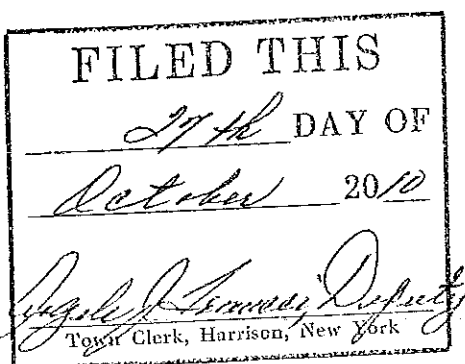 FILED THIS
27th DAY OF
October 2010
J. Deputy
Town Clerk, Harrison, New York